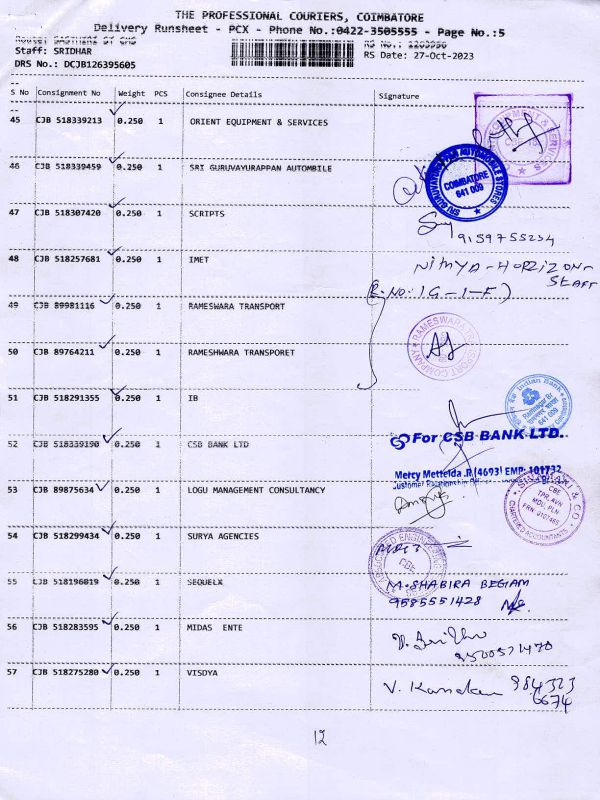 THE PROFESSIONAL COURIERS, COIMBATORE
Delivery Runsheet - PCX - Phone No.:0422-3505555 - Page No.:5
Staff: SRIDHAR
RS Date: 27-Oct-2023
DRS No.: DCJB126395605
S No Consignment No Weight PCS Consignee Details Signature
45 CJB 518339213 0.250 1 ORIENT EQUIPMENT & SERVICES
46 CJB 518339459 0.250 1 SRI GURUVAYURAPPAN AUTOMBILE
SRI GURUVAYURAPPAN AUTOMOBILE STORES
COIMBATORE
641 009
47 CJB 518307420 0.250 1 SCRIPTS
9159755234
48 CJB 518257681 0.250 1 IMET
NITHYA-HORZIZON-
STAFF
R.NO:(G-1-F)
49 CJB 89981116 0.250 1 RAMESWARA TRANSPORT
50 CJB 89764211 0.250 1 RAMESHWARA TRANSPORET
RAMESWARA TRANSPORT COMPANY
51 CJB 518291355 0.250 1 IB
Indian Bank
641 009
52 CJB 518339190 0.250 1 CSB BANK LTD
For CSB BANK LTD.
Mercy Mettelda .R(4693) EMP: 101732
Customer Relationship Officer
53 CJB 89875634 0.250 1 LOGU MANAGEMENT CONSULTANCY
CBE
TPR, AVN
MDU, PLN
CHARTERED ACCOUNTANTS
54 CJB 518299434 0.250 1 SURYA AGENCIES
CBE
55 CJB 518196019 0.250 1 SEQUELX
M.SHABIRA BEGAM
9585551428
56 CJB 518283595 0.250 1 MIDAS ENTE
9500571470
57 CJB 518275280 0.250 1 VISDYA
V. Kandan 984323
6674
12